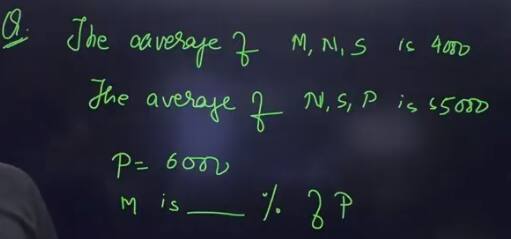 Q. The aaverage of M, N, S is 4000
The average of N, S, P is 55000
P = 6000
M is ___ % of P